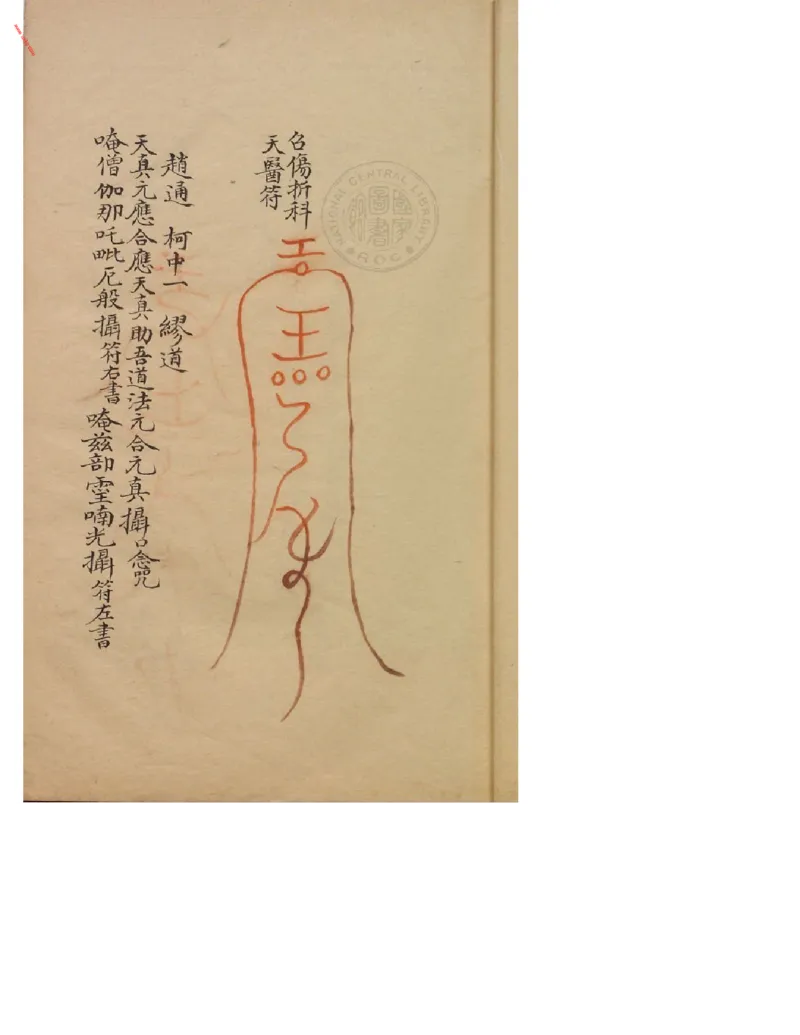 召傷折科
天醫符
趙通 柯中一 繆道
天真元應合應天真助吾道法元合元真攝口念咒
唵僧伽那吒毗厄般攝符右書 唵茲部霊喃光攝符左書
NATIONAL CENTRAL LIBRARY
ROC
國家圖書館